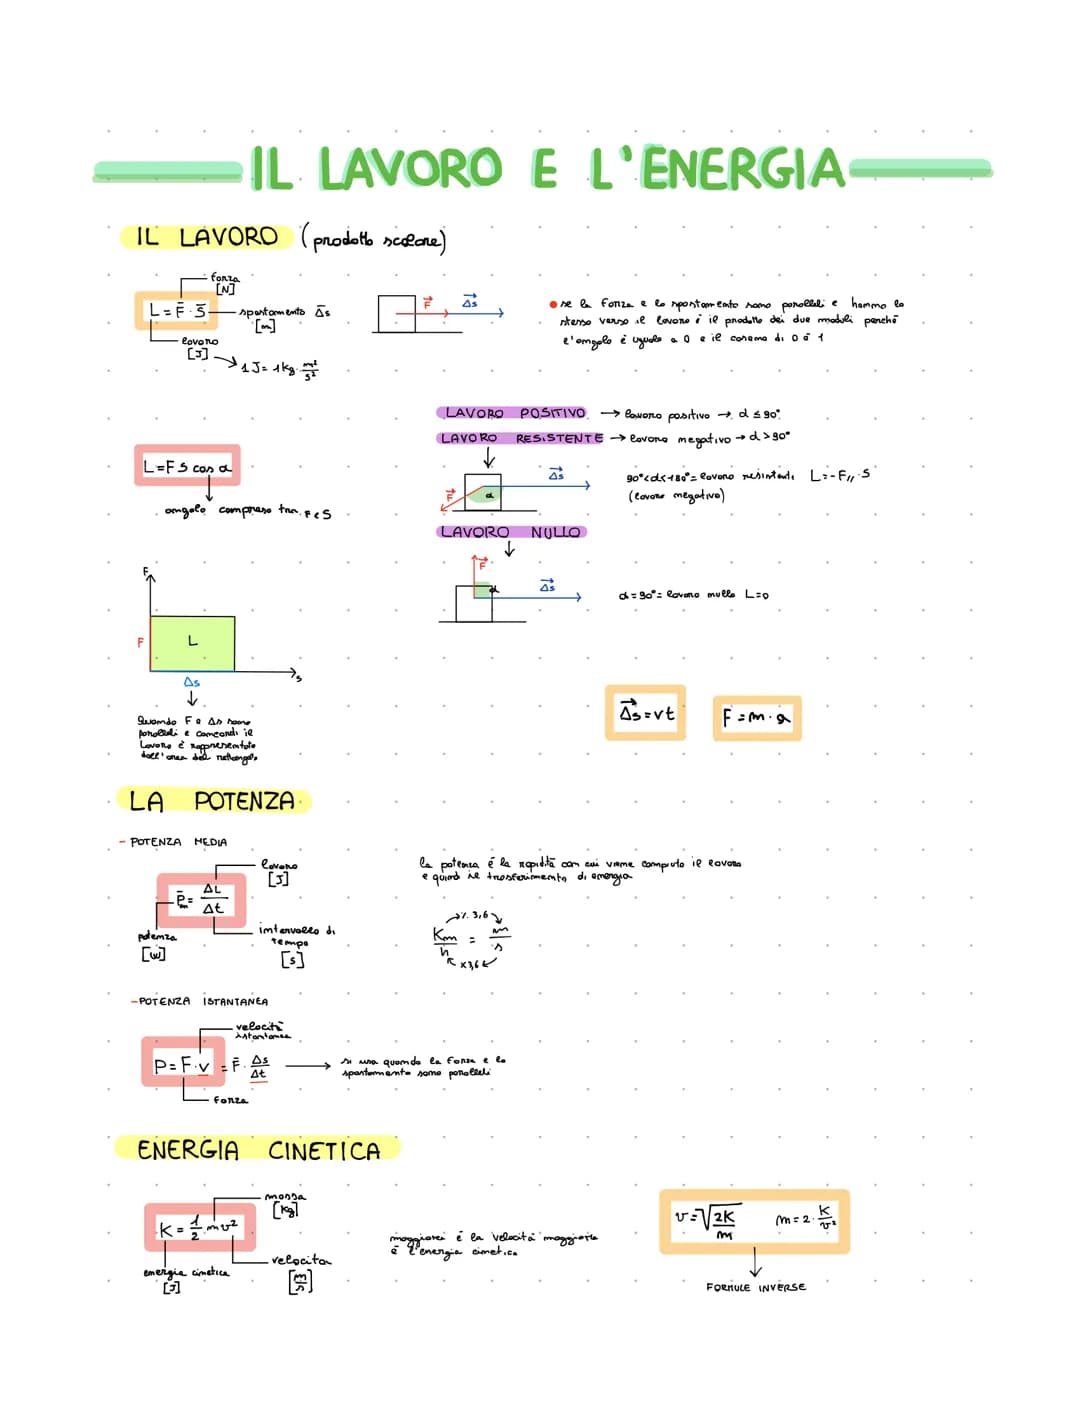 IL LAVORO E L'ENERGIA
IL LAVORO (prodotto scalare)
forza
[N]
L = F̄ · S̄
spostamento Δ̄s
[m]
lavoro
[J]
1 J = 1 kg · m²/s²
F⃗
Δs⃗
• se la forza e lo spostamento sono paralleli e hanno lo
stesso verso il lavoro è il prodotto dei due moduli perché
l'angolo è uguale a 0 e il coseno di 0 è 1
LAVORO POSITIVO → lavoro positivo → α ≤ 90°
LAVORO RESISTENTE → lavoro negativo → α > 90°
L = F S cos α
angolo compreso tra F e S
F⃗
α
Δs⃗
90° < α < 180° = lavoro resistente L = -F// · S
(lavoro negativo)
LAVORO NULLO
F⃗
α
Δs⃗
α = 90° = lavoro nullo L = 0
F
F
L
s
Δs
Quando F e Δs sono
paralleli e concordi il
lavoro è rappresentato
dall'area del rettangolo
Δs⃗ = vt
F = m · a
LA POTENZA
- POTENZA MEDIA
lavoro
[J]
P̄m = ΔL/Δt
potenza
[W]
intervallo di
tempo
[s]
la potenza è la rapidità con cui viene compiuto il lavoro
e quindi il trasferimento di energia
: 3,6
Km/h = m/s
x3,6
- POTENZA ISTANTANEA
velocità
istantanea
P = F · v = F̄ · Δs/Δt
si usa quando la forza e lo
spostamento sono paralleli
forza
ENERGIA CINETICA
massa
[kg]
K = 1/2 mv²
energia cinetica
[J]
velocità
[m/s]
maggiore è la velocità maggiore
è l'energia cinetica
v = √2K/m
m = 2 · K/v²
FORMULE INVERSE